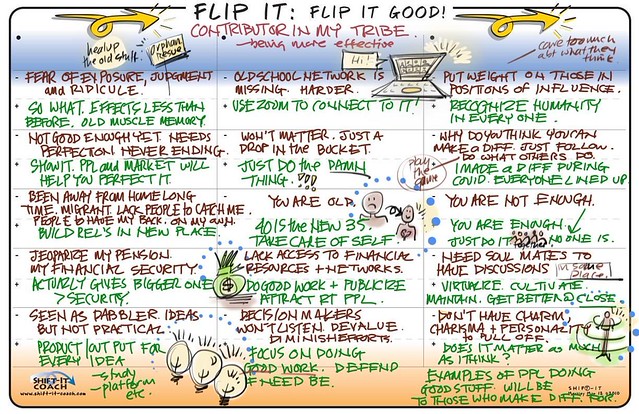 FLIP IT: FLIP IT GOOD!
CONTRIBUTOR IN MY TRIBE
- being more effective
heal up
the old stuff.
orphan
rescue
care too much
abt what they
think
Hi!
- FEAR OF EXPOSURE, JUDGMENT
and RIDICULE.
+ SO WHAT. EFFECTS LESS THAN
BEFORE. OLD MUSCLE MEMORY.
- NOT GOOD ENOUGH YET. NEEDS
PERFECTION. NEVER ENDING.
+ SHOW IT. PPL and MARKET WILL
HELP YOU PERFECT IT.
- BEEN AWAY FROM HOME LONG
TIME. MIGRANT. LACK PEOPLE TO CATCH ME.
PEOPLE TO HAVE MY BACK. ON MY OWN.
+ BUILD REL'S IN NEW PLACE.
- JEOPARIZE MY PENSION.
MY FINANCIAL SECURITY.
+ ACTUALLY GIVES BIGGER ONE
> SECURITY.
- SEEN AS DABBLER. IDEAS
BUT NOT PRACTICAL.
+ PRODUCT OUT PUT FOR
EVERY IDEA
- study
- platform
etc.
- OLD SCHOOL NETWORK IS
MISSING. HARDER.
+ USE ZOOM TO CONNECT TO IT!
- WON'T MATTER. JUST A
DROP IN THE BUCKET.
+ JUST DO THE DAMN
THING. !!!
- YOU ARE OLD.
+ 40 IS THE NEW 35
TAKE CARE OF SELF.
- LACK ACCESS TO FINANCIAL
RESOURCES + NETWORKS.
+ DO GOOD WORK + PUBLICIZE
ATTRACT RT PPL.
$
- DECISION MAKERS
WON'T LISTEN. DEVALUE.
DIMINISH EFFORTS.
+ FOCUS ON DOING
GOOD WORK. DEFEND
IF NEED BE.
- PUT WEIGHT ON THOSE IN
POSITIONS OF INFLUENCE.
+ RECOGNIZE HUMANITY
IN EVERY ONE.
- WHY DO YOU THINK YOU CAN
MAKE A DIFF. JUST FOLLOW.
DO WHAT OTHERS DO.
play
the
game
+ I MADE A DIFF DURING
COVID. EVERYONE LINED UP.
- YOU ARE NOT ENOUGH.
+ YOU ARE ENOUGH
JUST DO IT NO ONE IS.
- NEED SOUL MATES TO
HAVE DISCUSSIONS
in same
place.
+ VIRTUALIZE. CULTIVATE.
MAINTAIN. GET BETTER @ CLOSE
- DON'T HAVE CHARM
CHARISMA + PERSONALITY
TO PULL OFF.
+ DOES IT MATTER AS MUCH
AS I THINK?
EXAMPLES OF PPL DOING
GOOD STUFF. WILL BE
TO THOSE WHO MAKE DIFF FOR.
SHIFT-IT
COACH
www.shift-it-coach.com
SHIFT-IT